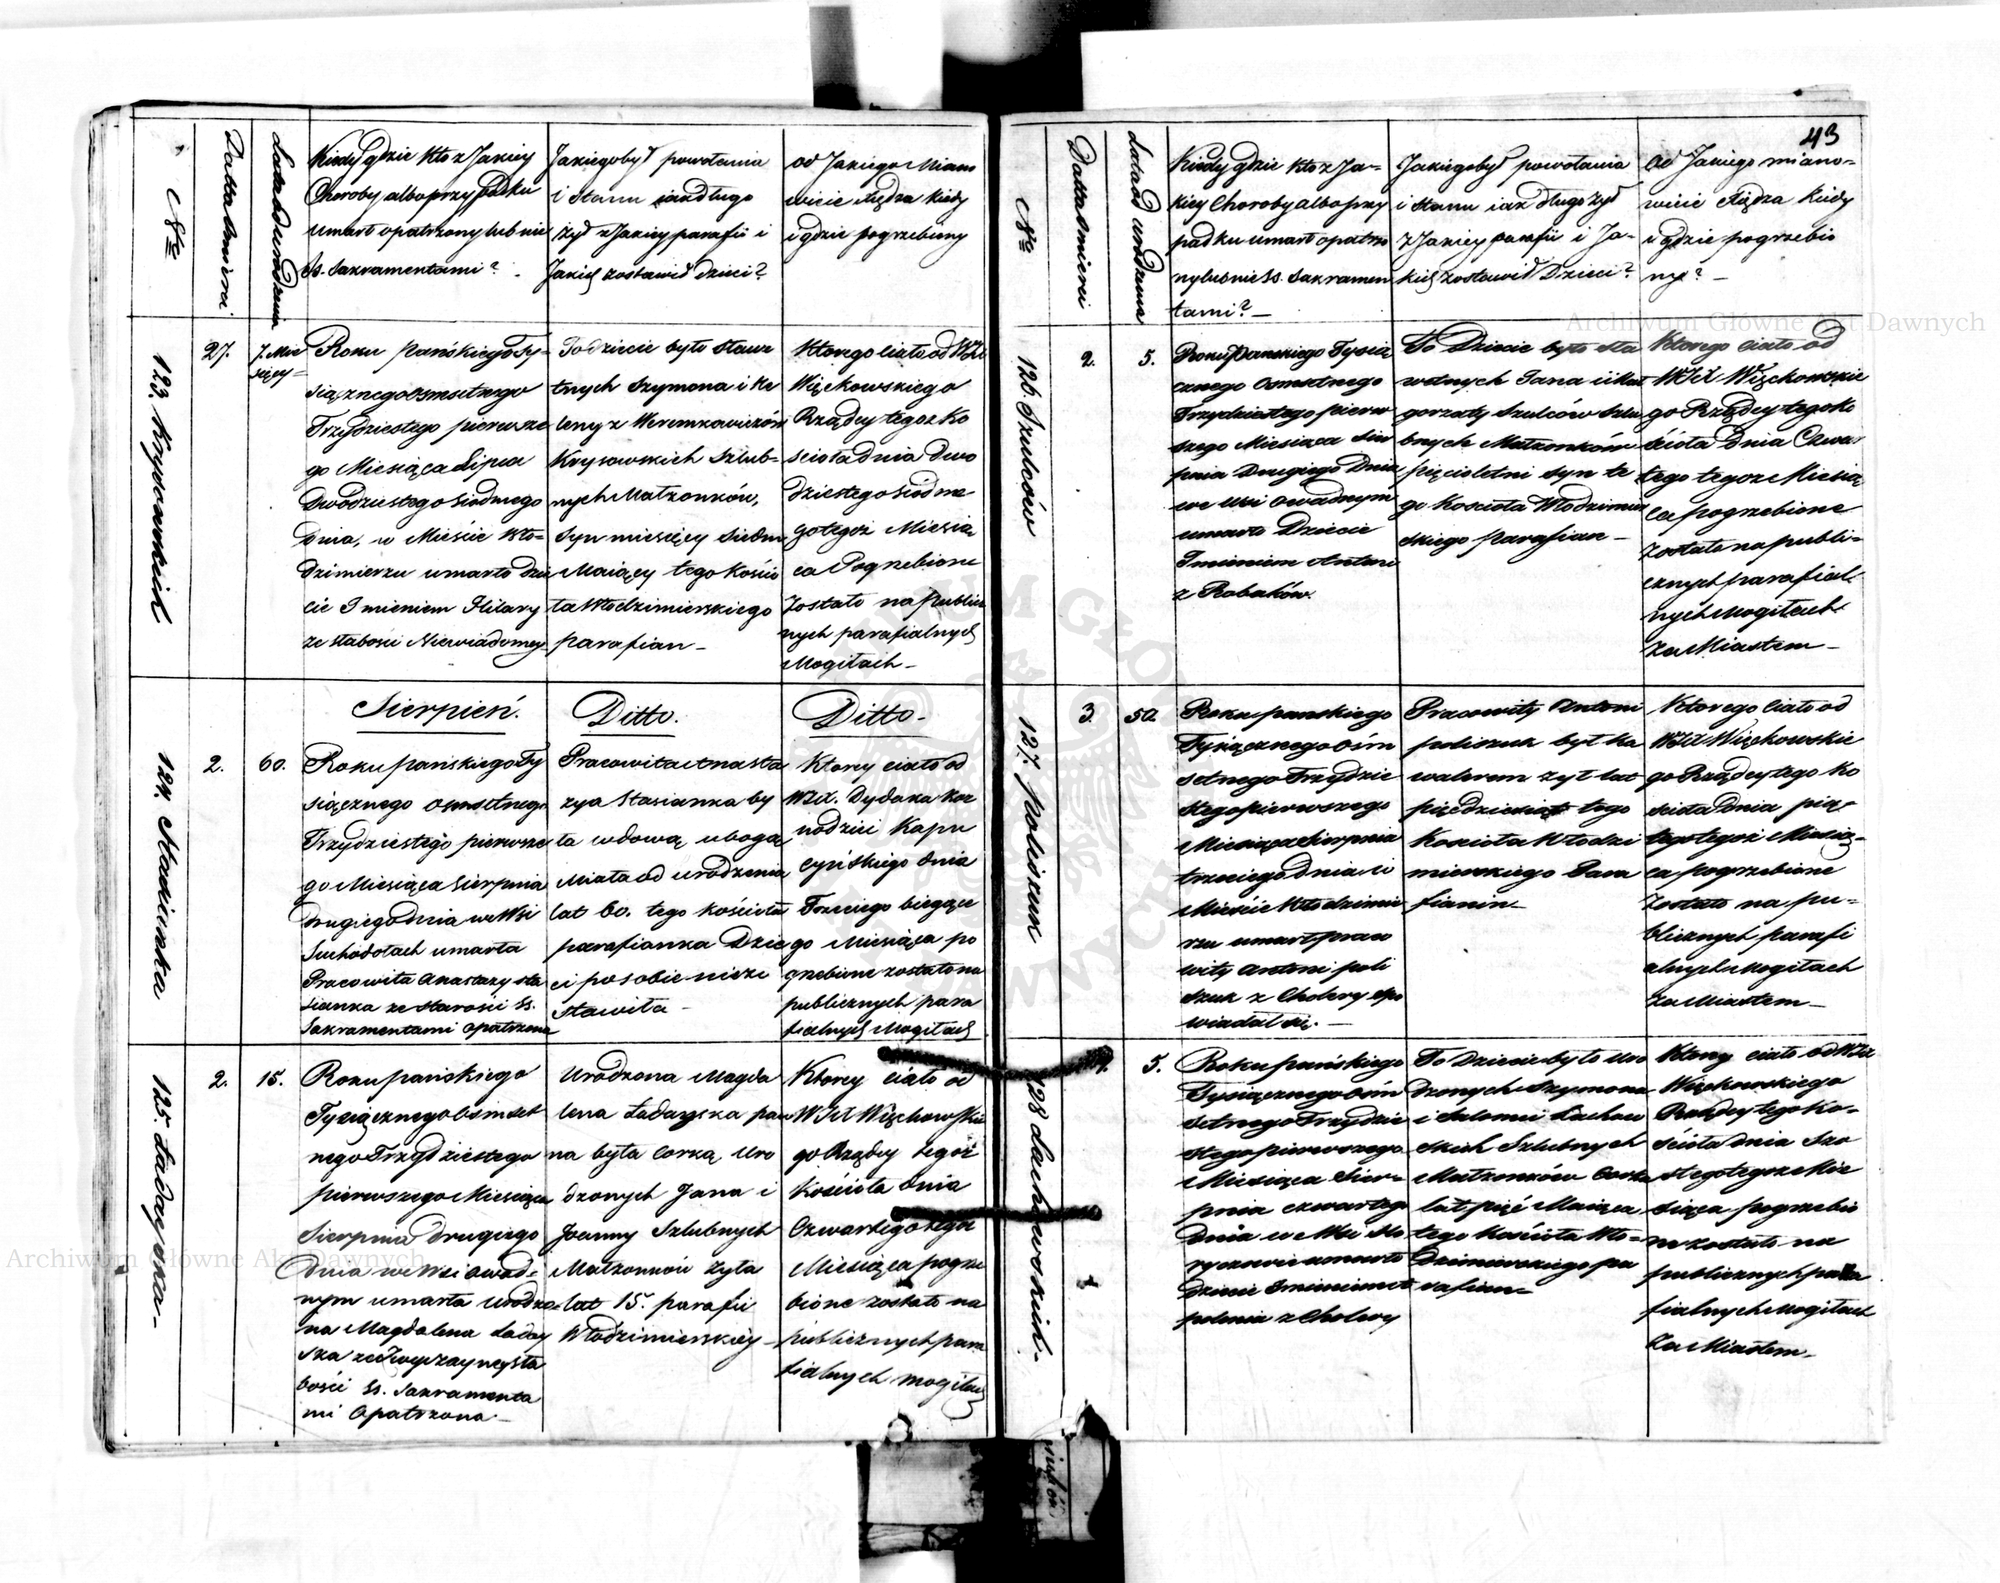 43
Nro
Datta Śmierci
Lata od urodzenia
Kiedy gdzie kto z Jakiey
Choroby albo przypadku
umarł opatrzony lub nie
SS. Sakramentami?
Jakiego był powołania
i Stanu jak długo
żył z Jakiey parafii i
Jakich zostawił dzieci?
od Jakiego Miano
wicie Xiędza kiedy
i gdzie pogrzebiony
123.
27.
7. Mie
sięcy
Roku Pańskiego Ty-
siącznego Osmsetnego
Trzydziestego pierwsze
go Miesiąca Lipca
Dwódziestego Siódmego
Dnia, w Mieście Wło-
dzimierzu umarło dzie
cie Imieniem Hilary
ze słabości Niewiadomey
To dziecie było Sław
etnych Szymona i He
leny z
Krysowskich Szlub-
nych Małzonków,
Syn miesięcy Siedm
Maiący tego Kościo
ła Włodzimierskiego
parafian
Ktorego ciało od WJX
Więckowskiego
Rządcy tegoz Ko
scioła dnia dwo
dziestego Siódme
go tegoż Miesią
ca Pogrzebione
zostało na publicz
nych parafialnych
Mogiłach
Sierpień.
Ditto.
Ditto
124. Stasianka
2.
60.
Roku Pańskiego Ty
siącznego Osmsetnego
Trzydziestego pierwsze
go Miesiąca Sierpnia
drugiego dnia we Wsi
Suchodołach umarła
Pracowita Anastazya Sta
sianka ze starości SS.
Sakramentami opatrzona
Pracowita Anasta
zya Stasianka by
ła wdową ubogą
Miała od urodzenia
lat 60. tego kościoła
parafianka Dzie
ci po sobie nie zo
stawiła
Ktorey ciało od
WJX. Dydaka
Kapu
cyńskiego dnia
Trzeciego biegące
go Miesiąca po
grzebione zostało na
publicznych para
fialnych Mogiłach
125. Ładayska
2.
15.
Roku pańskiego
Tysiącznego Osmset
nego Trzydziestego
pierwszego Miesiąca
Sierpnia Drugiego
dnia we Wsi Owad-
nym umarła Urodzo
na Magdalena Ładay
ska ze zwyczayney sła
bości SS. Sakramenta
mi Opatrzona
Urodzona Magda
lena Ładayska pan
na była Corką Uro
dzonych Jana i
Joanny Szlubnych
Małzonków żyła
lat 15. parafii
Włodzimierskiey
Ktorey ciało od
WJX Więckowskie
go Rządcy tegoż
Kościoła dnia
Czwartego tegoż
Miesiąca pogrze
bione zostało na
publicznych para
fialnych mogiłach
Nro
Datta Śmierci
Lata od urodzenia
Kiedy gdzie kto z Ja-
kiey Choroby albo przy
padku umarł opatrzo
ny lub nie SS. Sakramen
tami?
Jakiego był powołania
i stanu jak długo żył
z Jakiey parafii i Ja-
kich zostawił Dzieci?
od Jakiego miano-
wicie Xiędza kiedy
i gdzie pogrzebio
ny?
126. Szulców
2.
5.
Roku Pańskiego Tysią
cznego Osmsetnego
Trzydziestego pierw
szego Miesiąca Sier
pnia Drugiego Dnia
we Wsi Owadnym
umarło Dziecie
Imieniem Antoni
z Robaków.
To Dziecie było Sła
wetnych Jana i Mał
gorzaty Szulców Szlu
bnych Małzonków
pięcioletni syn te
go Kościoła Włodzimier
skiego parafian
Ktorego ciało od
WJX Więckowskie
go Rządcy tego Ko
ścioła Dnia Czwar
tego tegoz Miesią
ca pogrzebione
zostało na publi-
cznych parafial
nych Mogiłach
Za Miastem
127. Poliszuk
3.
50.
Roku pańskiego
Tysiącznego Ośm
setnego Trzydzie
stego pierwszego
Miesiąca Sierpnia
trzeciego Dnia w
Mieście Włodzimie
rzu umarł praco
wity Antoni Poli
szuk z Cholery spo
wiadał się.
Pracowity Antoni
poliszuk był ka
walerem żył lat
pięćdziesiąt tego
Kościoła Włodzi
mierskiego Para
fianin
Ktorego ciało od
WJX Więckowskie
go Rządcy tego Ko
ścioła Dnia pią
tego tegoż Miesią-
ca pogrzebione
zostało na pu-
blicznych parafi
alnych Mogiłach
Za Miastem
128 Lachowskich
5.
Roku pańskiego
Tysiącznego Ośm
setnego Trzydzie
stego pierwszego
Miesiąca Sier-
pnia czwartego
dnia w Wsi
umarło
dziecie Imieniem A
polonia z Cholery
To Dziecie było Uro
dzonych Szymona
i Salomei Lachow
skich Szlubnych
Małzonków Corka
lat pięć Maiąca
tego Kościoła Wło-
dzimierskiego pa
rafian
Ktorey ciało od WJX
Więckowskiego
Rządcy tego Ko-
ścioła dnia Szo
stego tegoz Mie
siąca pogrzebio
ne zostało na
publicznych para
fialnych Mogiłach
Za Miastem
Archiwum Główne Akt Dawnych
Archiwum Główne Akt Dawnych